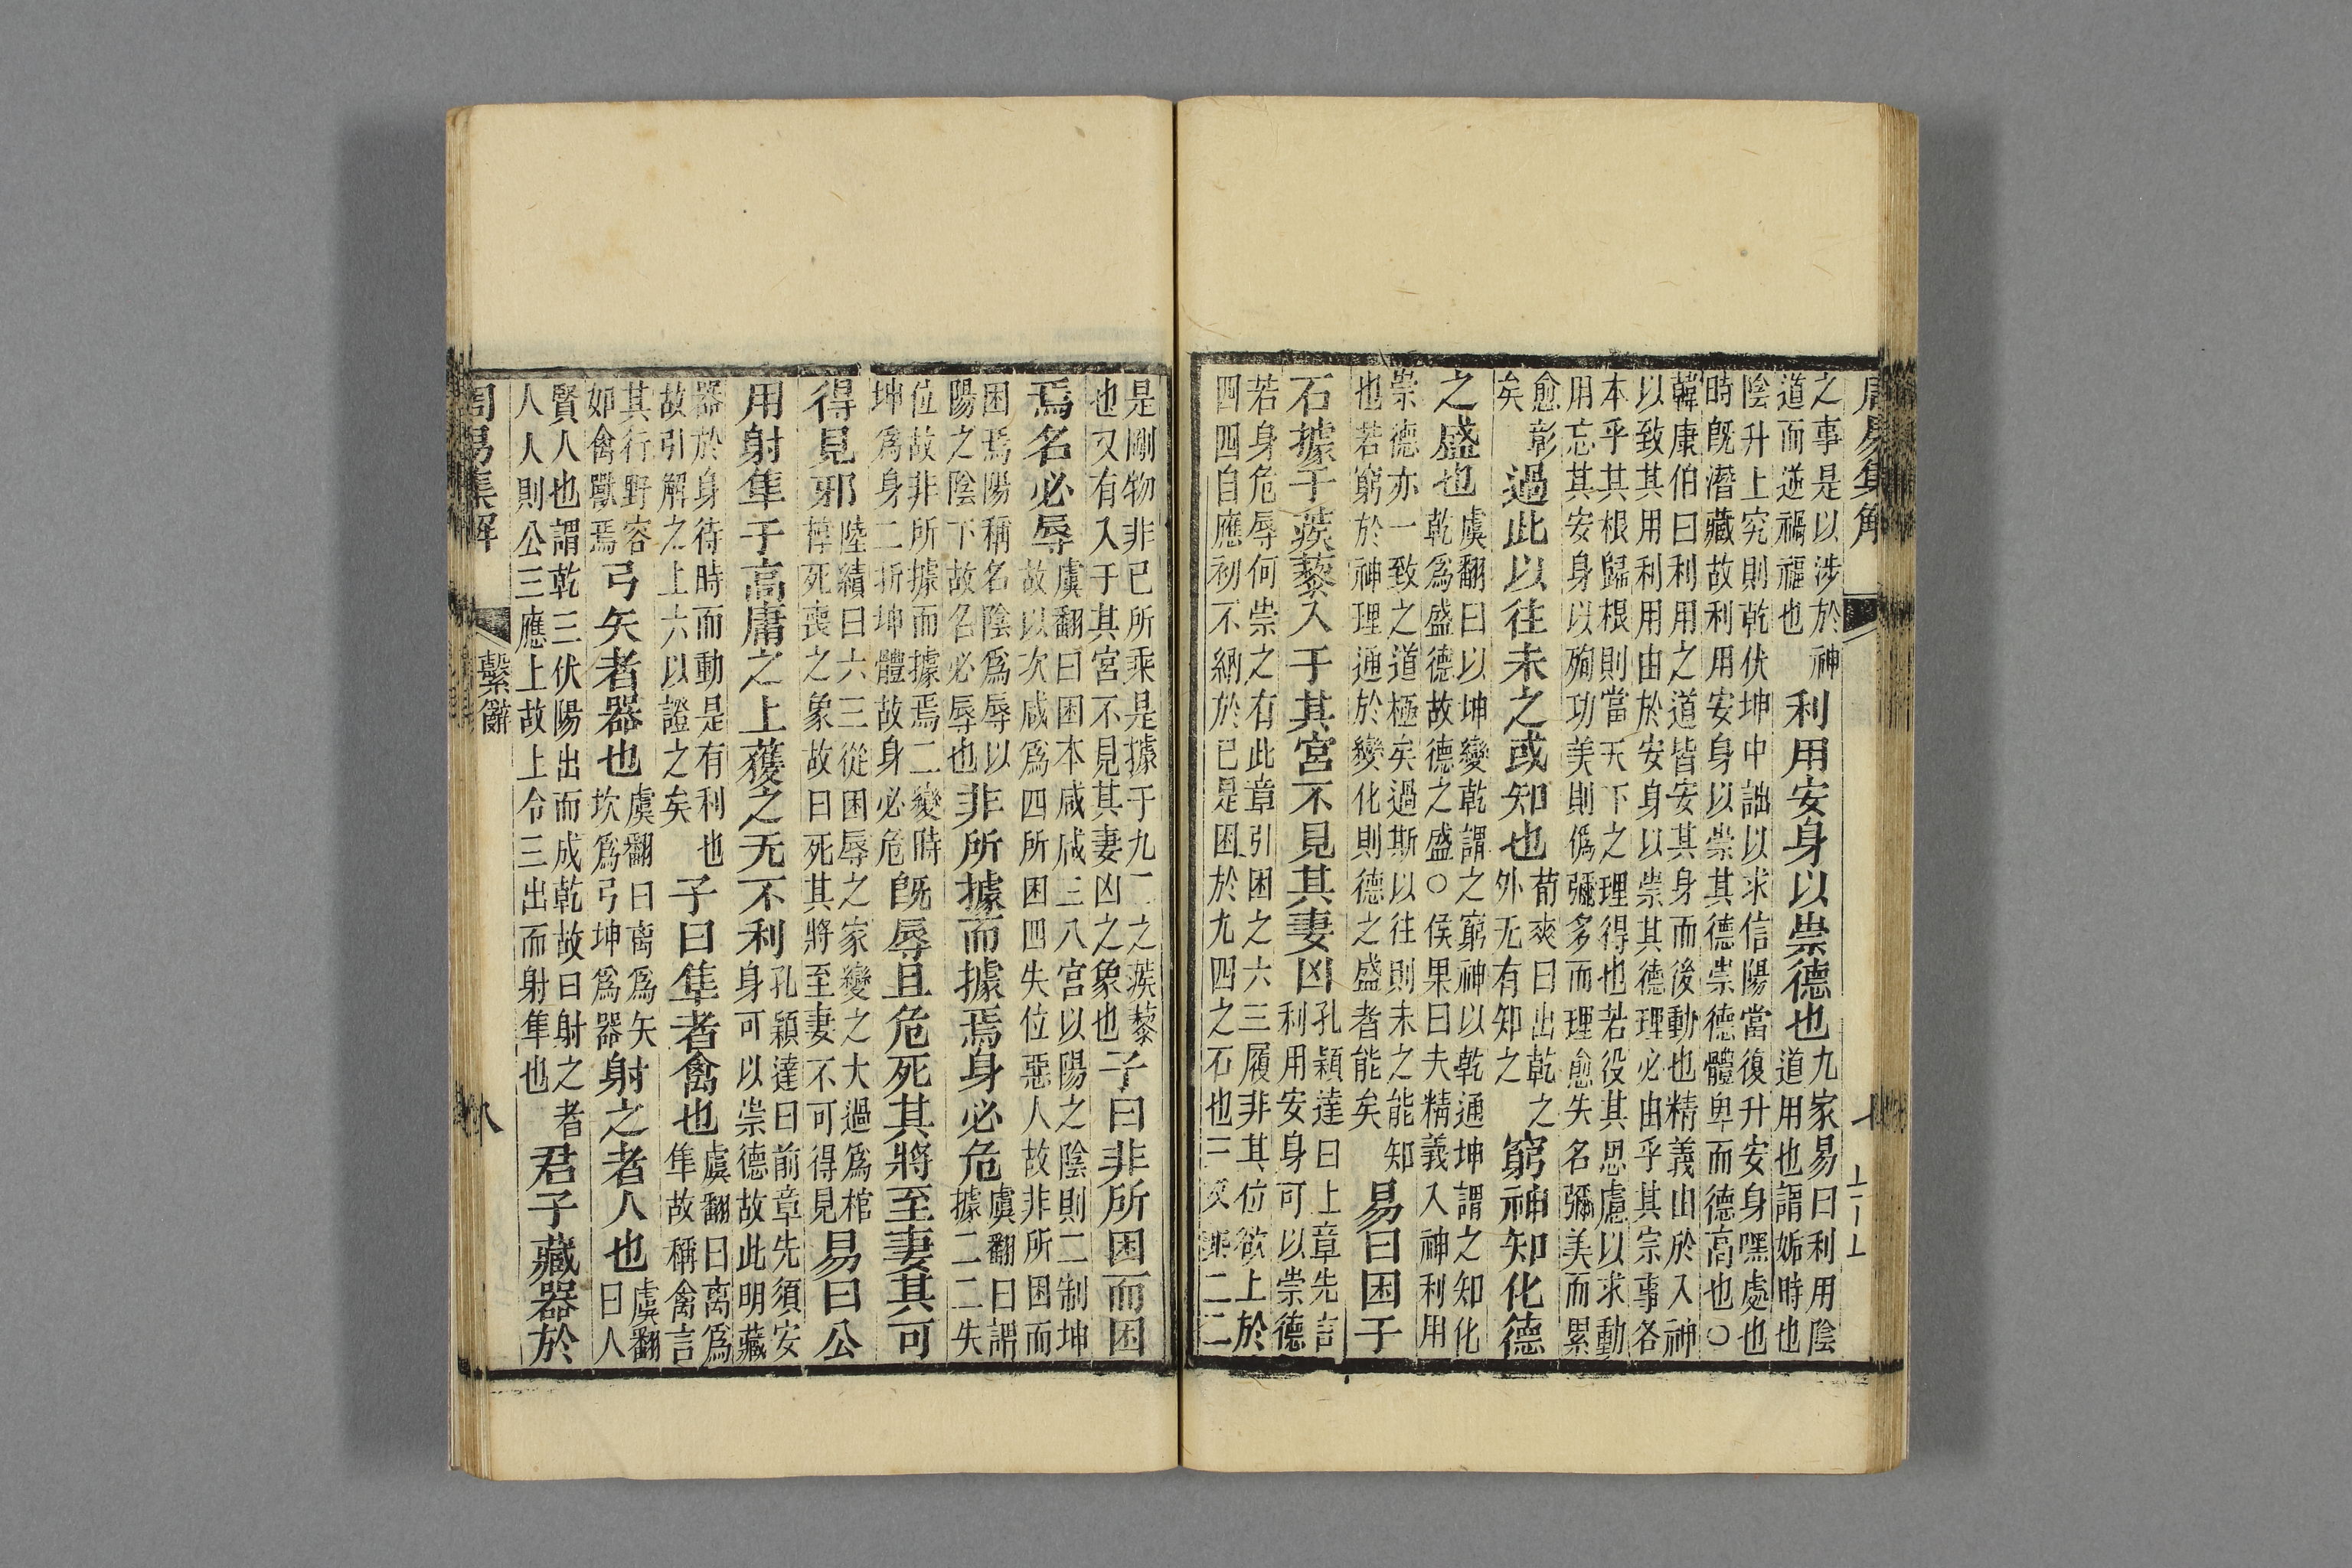 周易集解
之事是以涉於神
道而逆禍福也
利用安身以崇德也
九家易曰利用陰
道用也謂姤時也
陰升上究則乾伏坤中詘以求信陽當復升安身嘿處也
時旣潛藏故利用安身以崇其德崇德體卑而德高也○
韓康伯曰利用之道皆安其身而後動也精義由於入神
以致其用利用由於安身以崇其德理必由乎其宗事各
本乎其根歸根則當天下之理得也若役其思慮以求動
用忘其安身以殉功美則僞彌多而理愈失名彌美而累
愈彰
矣
過此以往未之或知也
荀爽曰出乾之
外无有知之
窮神知化德
之盛也
虞翻曰以坤變乾謂之窮神以乾通坤謂之知化
乾爲盛德故德之盛○侯果曰夫精義入神利用
崇德亦一致之道極矣過斯以往則未之能知
也若窮於神理通於變化則德之盛者能矣
易曰困于
石據于蒺藜入于其宮不見其妻凶
孔穎達曰上章先言
利用安身可以崇德
若身危辱何崇之有此章引困之六三履非其位欲上於
四四自應初不納於已是困於九四之石也三又乘二二
是剛物非已所乘是據于九二之蒺藜
也又有入于其宮不見其妻凶之象也
子曰非所困而困
焉名必辱
虞翻曰困本咸咸三八宮以陽之陰則二制坤
故以次咸爲四所困四失位惡人故非所困而
困焉陽稱名陰爲辱以
陽之陰下故名必辱也
非所據而據焉身必危
虞翻曰謂
據二二失
位故非所據而據焉二變時
坤爲身二折坤體故身必危
旣辱且危死其將至妻其可
得見邪
陸績曰六三從困辱之家變之大過爲棺
椁死喪之象故曰死其將至妻不可得見
易曰公
用射隼于高庸之上獲之无不利
孔穎達曰前章先須安
身可以崇德故此明藏
器於身待時而動是有利也
故引解之上六以證之矣
子曰隼者禽也
虞翻曰离爲
隼故稱禽言
其行野容
如禽獸焉
弓矢者器也
虞翻曰离爲矢
坎爲弓坤爲器
射之者人也
虞翻
曰人
賢人也謂乾三伏陽出而成乾故曰射之者
人人則公三應上故上令三出而射隼也
君子藏器於
周易集解
繫辭
八